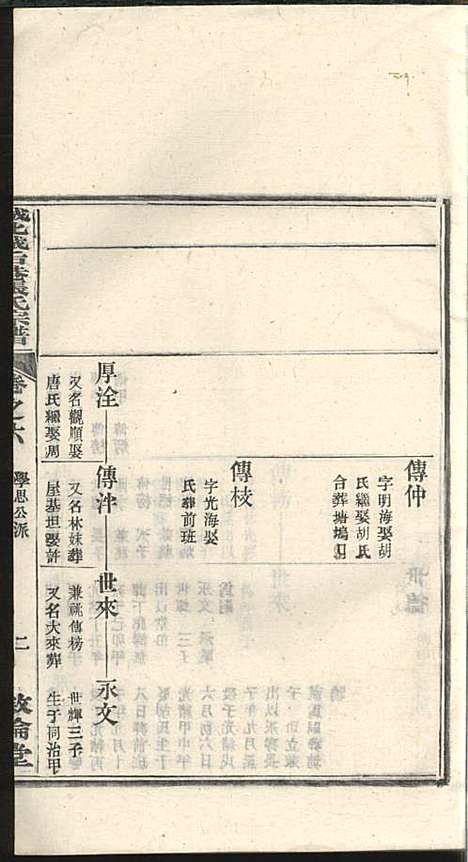 傳仲
字明海娶胡
氏繼娶胡氏
合葬塘塢口
傳枝
字光海娶
氏葬前班
厚洤
又名觀順娶
唐氏繼娶周
傳泮
又名林妹葬
屋基坦娶許
世來
兼祧傳榜
又名大來葬
永文
世輝三子
生于同治甲
張氏宗譜
卷之六
學思公派
二
敘倫堂